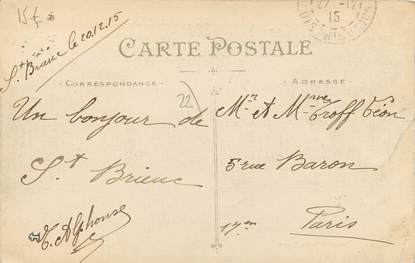 15f
St Brieuc le 20.12.15
15
CARTE POSTALE
CORRESPONDANCE
ADRESSE
22
Un bonjour de
St Brieuc
E. Alphonse
Mr et Mme Troff Léon
5 rue Baron
17em
Paris